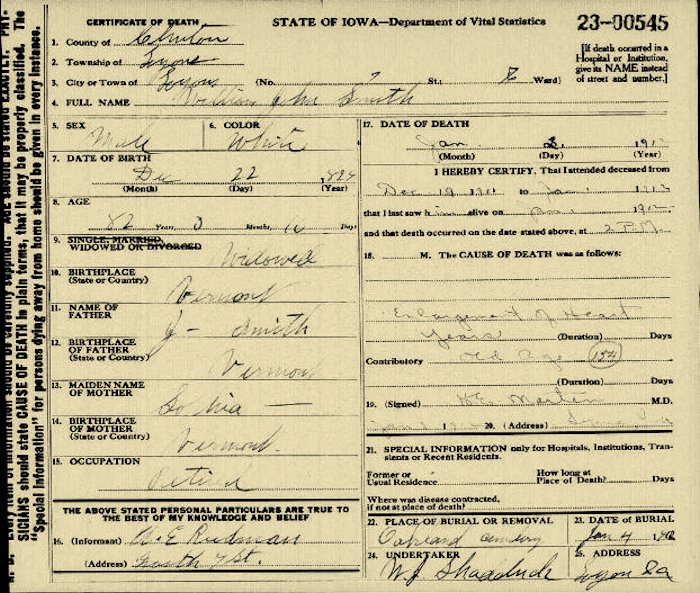 N. B. Every item of information should be carefully supplied. AGE should be stated EXACTLY. PHY-
SICIANS should state CAUSE OF DEATH in plain terms, that it may be properly classified. The
"Special Information" for persons dying away from home should be given in every instance.
CERTIFICATE OF DEATH
STATE OF IOWA—Department of Vital Statistics
23-00545
1. County of Clinton
2. Township of Lyons
3. City or Town of Lyons (No. ? St.; Ward)
[If death occurred in a
Hospital or Institution,
give its NAME instead
of street and number.]
4. FULL NAME William John Smith
5. SEX Male
6. COLOR White
7. DATE OF BIRTH
Dec 22
(Month) (Day) (Year)
8. AGE
82 Years, 3 Months, Days
9. SINGLE, MARRIED,
WIDOWED OR DIVORCED Widowed
10. BIRTHPLACE
(State or Country) Vermont
11. NAME OF
FATHER J- Smith
12. BIRTHPLACE OF
FATHER
(State or Country) Vermont
13. MAIDEN NAME
OF MOTHER Sophia —
14. BIRTHPLACE
OF MOTHER
(State or Country) Vermont.
15. OCCUPATION
Retired
THE ABOVE STATED PERSONAL PARTICULARS ARE TRUE TO
THE BEST OF MY KNOWLEDGE AND BELIEF
16. (Informant)
(Address) St.
17. DATE OF DEATH
Jan. 2,
(Month) (Day) (Year)
I HEREBY CERTIFY, That I attended deceased from
Dec 19 1911 to Jan
that I last saw him alive on
and that death occurred on the date stated above, at 2 P.M.
18. M. The CAUSE OF DEATH was as follows:
Enlargement of Heart
Years (Duration) Days
Contributory Old Age (154)
(Duration) Days
19. (Signed) M.D.
20. (Address)
21. SPECIAL INFORMATION only for Hospitals, Institutions, Tran-
sients or Recent Residents.
Former or
Usual Residence
How long at
Place of Death? Days
Where was disease contracted,
if not at place of death?
22. PLACE OF BURIAL OR REMOVAL
Oakland Cemetery
23. DATE OF BURIAL
Jan 4
24. UNDERTAKER
W. J. Shadduck
25. ADDRESS
Lyons Ia